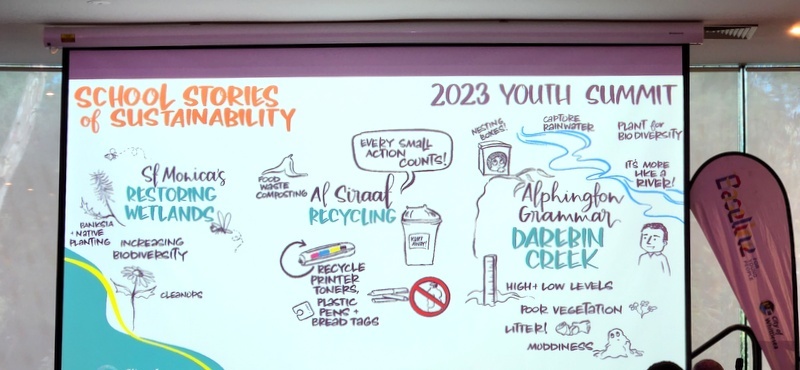 SCHOOL STORIES
of SUSTAINABILITY
2023 YOUTH SUMMIT
St Monica's
RESTORING
WETLANDS
BANKSIA
+ NATIVE
PLANTING
INCREASING
BIODIVERSITY
CLEANUPS
EVERY SMALL
ACTION
COUNTS!
FOOD
WASTE
COMPOSTING
Al Siraat
RECYCLING
RECYCLE
PRINTER
TONERS,
PLASTIC
PENS +
BREAD TAGS
NESTING
BOXES!
CAPTURE
RAINWATER
PLANT for
BIODIVERSITY
IT'S MORE
LIKE A
RIVER!
Alphington
Grammar
DAREBIN
CREEK
HIGH + LOW LEVELS
POOR VEGETATION
LITTER!
MUDDINESS
City of